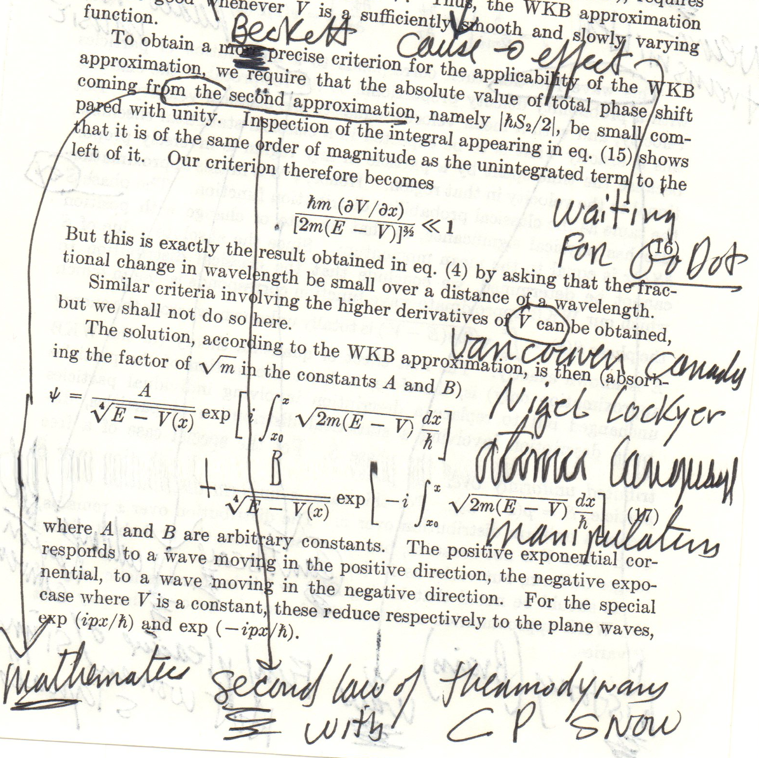 good whenever V is a sufficiently smooth and slowly varying
function.
Beckett cause → effect
To obtain a more precise criterion for the applicability of the WKB
approximation, we require that the absolute value of total phase shift
coming from the second approximation, namely |ℏS₂/2|, be small com-
pared with unity. Inspection of the integral appearing in eq. (15) shows
that it is of the same order of magnitude as the unintegrated term to the
left of it. Our criterion therefore becomes
ℏm (∂V/∂x) / [2m(E − V)]^{3/2} ≪ 1 (16)
waiting
FOR GoDot
But this is exactly the result obtained in eq. (4) by asking that the frac-
tional change in wavelength be small over a distance of a wavelength.
Similar criteria involving the higher derivatives of V can be obtained,
but we shall not do so here.
Vancouver Canady
The solution, according to the WKB approximation, is then (absorb-
ing the factor of √m in the constants A and B)
Nigel Lockyer
ψ = A / ∜(E − V(x)) exp [i ∫_{x₀}^{x} √(2m(E − V)) dx/ℏ]
+ B / ∜(E − V(x)) exp [−i ∫_{x₀}^{x} √(2m(E − V)) dx/ℏ] (17)
manipulators
where A and B are arbitrary constants. The positive exponential cor-
responds to a wave moving in the positive direction, the negative expo-
nential, to a wave moving in the negative direction. For the special
case where V is a constant, these reduce respectively to the plane waves,
exp (ipx/ℏ) and exp (−ipx/ℏ).
Mathematics second law of
with C P SNOW